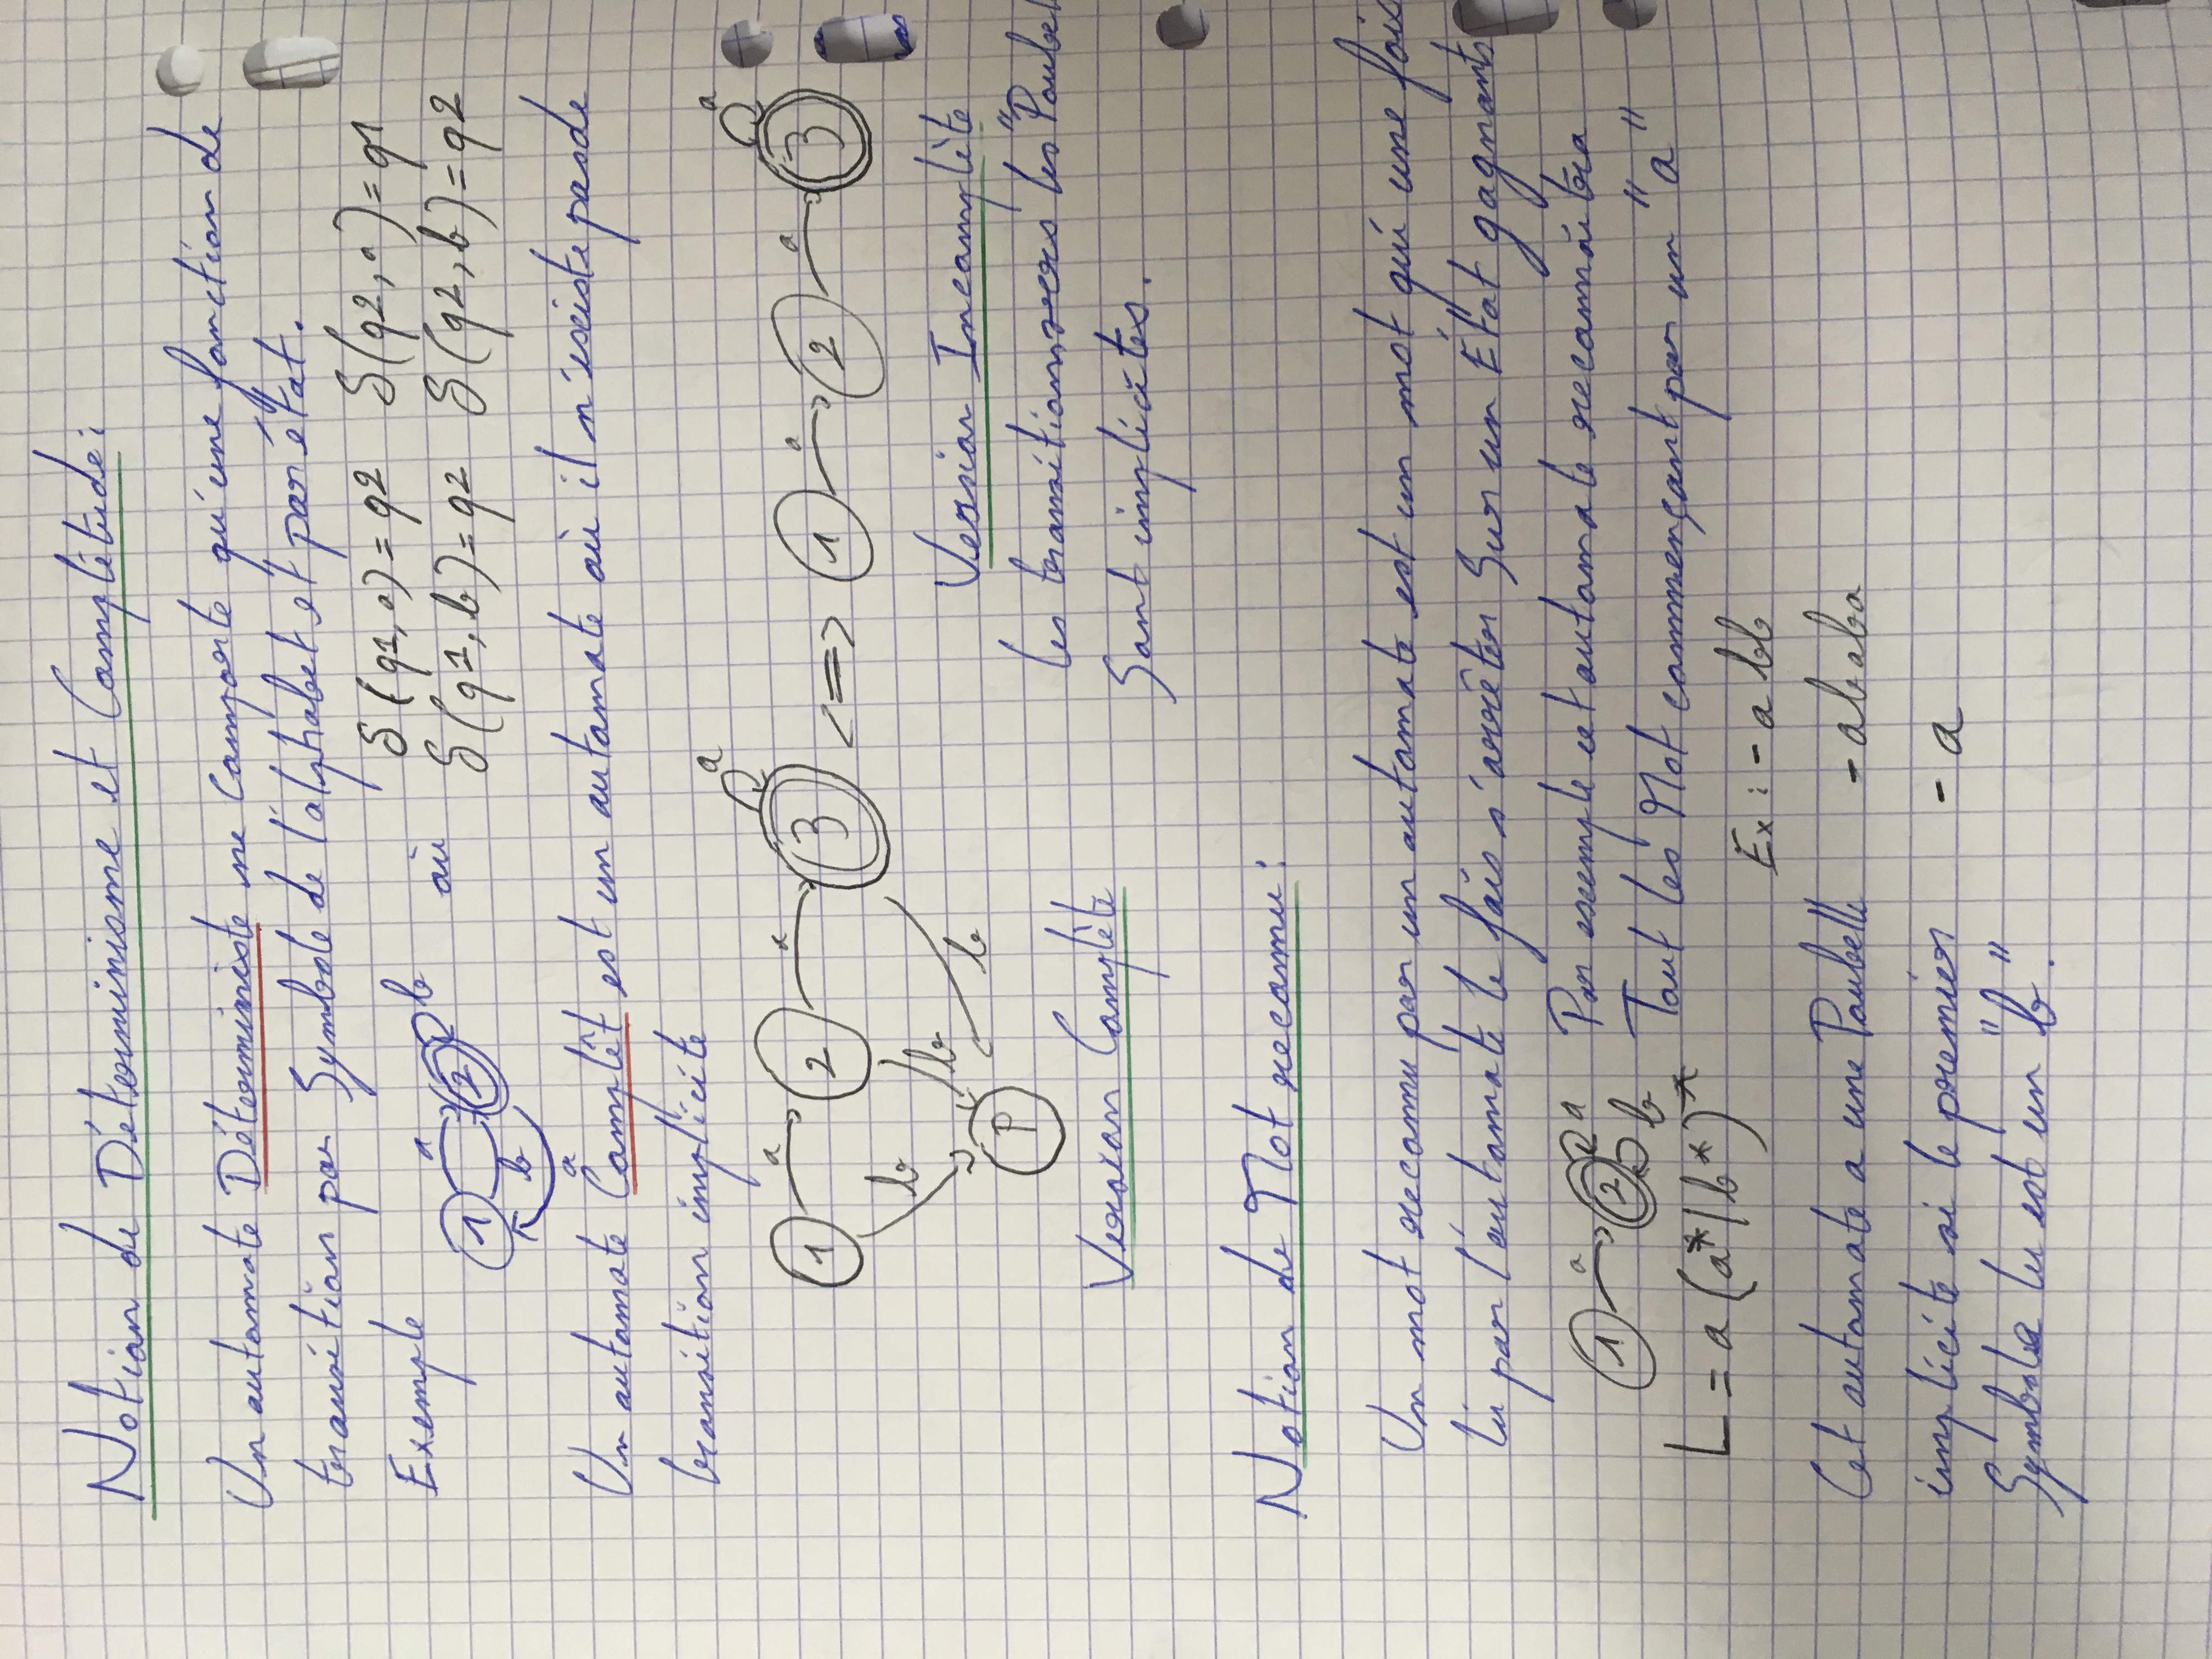 Notion de Déterminisme et Complétude :
Un automate Déterministe ne comporte qu'une fonction de
transition par Symbole de l'alphabet et par état.
Exemple
a
b
1
2
b
a
où
δ(q1, a) = q2 δ(q2, a) = q1
δ(q1, b) = q2 δ(q2, b) = q2
Un automate Complêt est un automate où il n'existe pas de
transition implicite
a
a
1 a 2 a 3 <=> 1 a 2 a 3
b b b
P
Version Incomplète
les transitions vers les "Poubel
Version Complète
Sont implicites.
Notion de Mot reconnu :
Un mot reconnu par un automate est un mot qui une fois
lu par l'automate le fais s'arrêter Sur un État gagnants
1 a 2 a
b
Par exemple cet automate reconnaitra
Tout les Mot commençant par un "a"
L = a (a*|b*)*
Ex : - a bb
Cet automate a une Poubelle
- ababa
implicite si le premier
- a
Symbole lu est un "b".